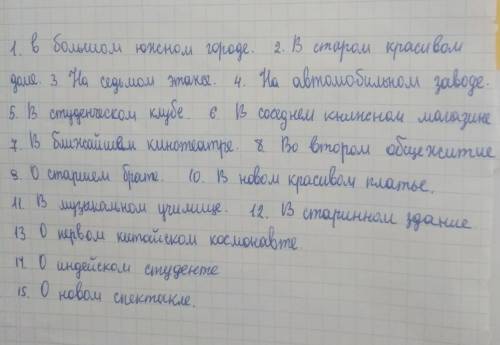 1. В большом южном городе. 2. В старом красивом
доме. 3. На седьмом этаже. 4. На автомобильном заводе.
5. В студенческом клубе. 6. В соседнем книжном магазине
7. В ближайшем кинотеатре. 8. Во втором общежитие
9. О старшем брате. 10. В новом красивом платье.
11. В музыкальном училище. 12. В старинном здание
13. О первом китайском космонавте
14. О индейском студенте
15. О новом спектакле.